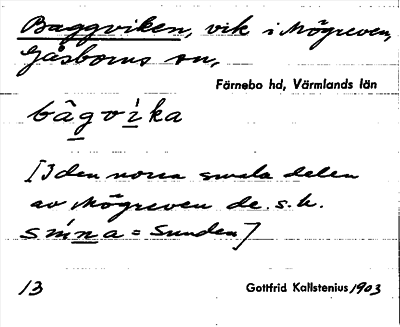 Baggviken, vik i Mögreven,
Gåsborns sn,
Färnebo hd, Värmlands län
bâgvìka
[I den norra smala delen
av Mögreven de. s. k.
sḿna = Sunden]
13 Gottfrid Kallstenius 1903